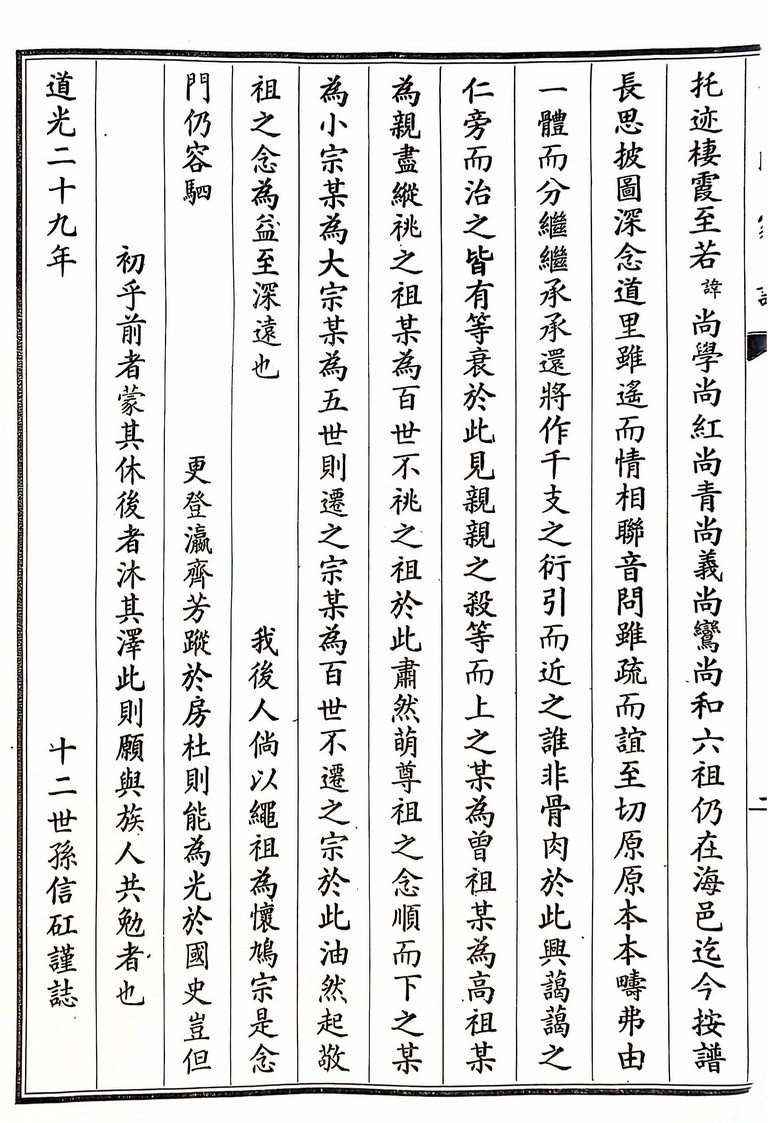 托迹棲霞至若諱尚學尚紅尚青尚義尚鸞尚和六祖仍在海邑迄今按譜
長思披圖深念道里雖遙而情相聯音問雖疏而誼至切原原本本疇弗由
一體而分繼繼承承還將作千支之衍引而近之誰非骨肉於此興藹藹之
仁旁而治之皆有等衰於此見親親之殺等而上之某為曾祖某為高祖某
為親盡縱祧之祖某為百世不祧之祖於此肅然萌尊祖之念順而下之某
為小宗某為大宗某為五世則遷之宗某為百世不遷之宗於此油然起敬
祖之念為益至深遠也 我後人倘以繩祖為懷鳩宗是念
門仍容駟 更登瀛齊芳蹤於房杜則能為光於國史豈但
初乎前者蒙其休後者沐其澤此則願與族人共勉者也
道光二十九年 十二世孫信矼謹誌